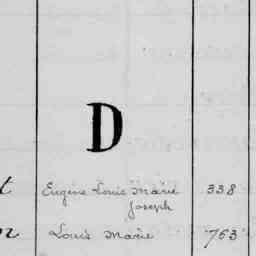 D
t Eugène Louis Marie 338
Joseph
n Louis Marie 763